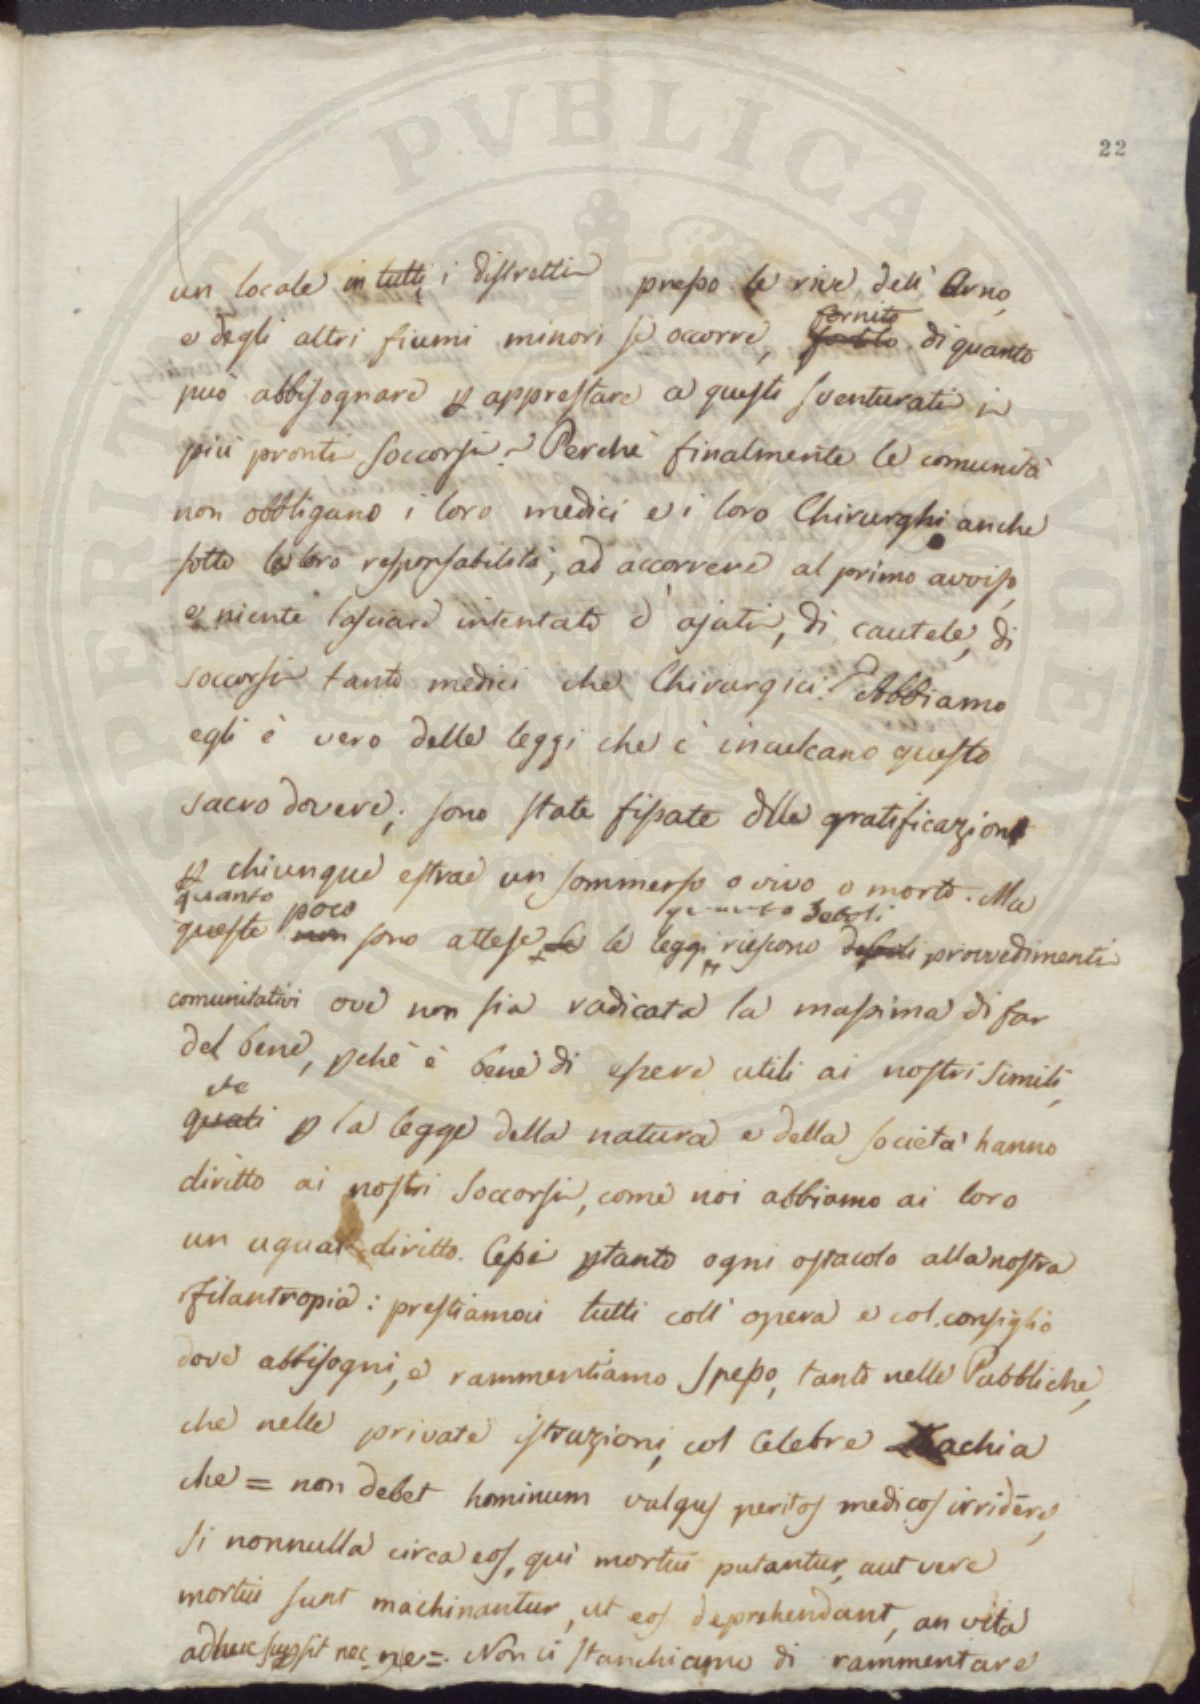 22
un locale in tutti i distretti presso le rive dell' Arno,
e degli altri fiumi minori se occorre, fornito di quanto
può abbisognare p apprestare a questi sventurati i
più pronti soccorsi? Perchè finalmente le comunità
non obbligano i loro medici e i loro Chirurghi anche
sotto la loro responsabilità, ad accorrere al primo avviso,
e niente lasciare intentato d' ajuti, di cautele, di
soccorsi tanto medici che Chirurgici? Abbiamo
egli è vero delle leggi che c' inculcano questo
sacro dovere; sono state fissate delle gratificazioni
p chiunque estrae un sommerso o vivo o morto. Ma
quanto poco quanto deboli
queste non sono attese le leggi, riescono deboli provvedimenti
comunitativi ove non sia radicata la massima di far
del bene, pchè è bene di essere utili ai nostri simili,
che
quali p la legge della natura e della società hanno
diritto ai nostri soccorsi, come noi abbiamo ai loro
un ugual diritto. Cessi ptanto ogni ostacolo alla nostra
filantropia: prestiamoci tutti coll' opera e col consiglio
dove abbisogni, e rammentiamo spesso, tanto nelle Pubbliche,
che nelle private istruzioni, col Celebre Zachia
che = non debet hominum vulgus peritos medicos irridere,
si nonnulla circa eos, qui mortui putantur, aut vere
mortui sunt machinantur, ut eos deprehendant, an vita
adhuc supsit nec ne =. Non ci stanchiamo di rammentare